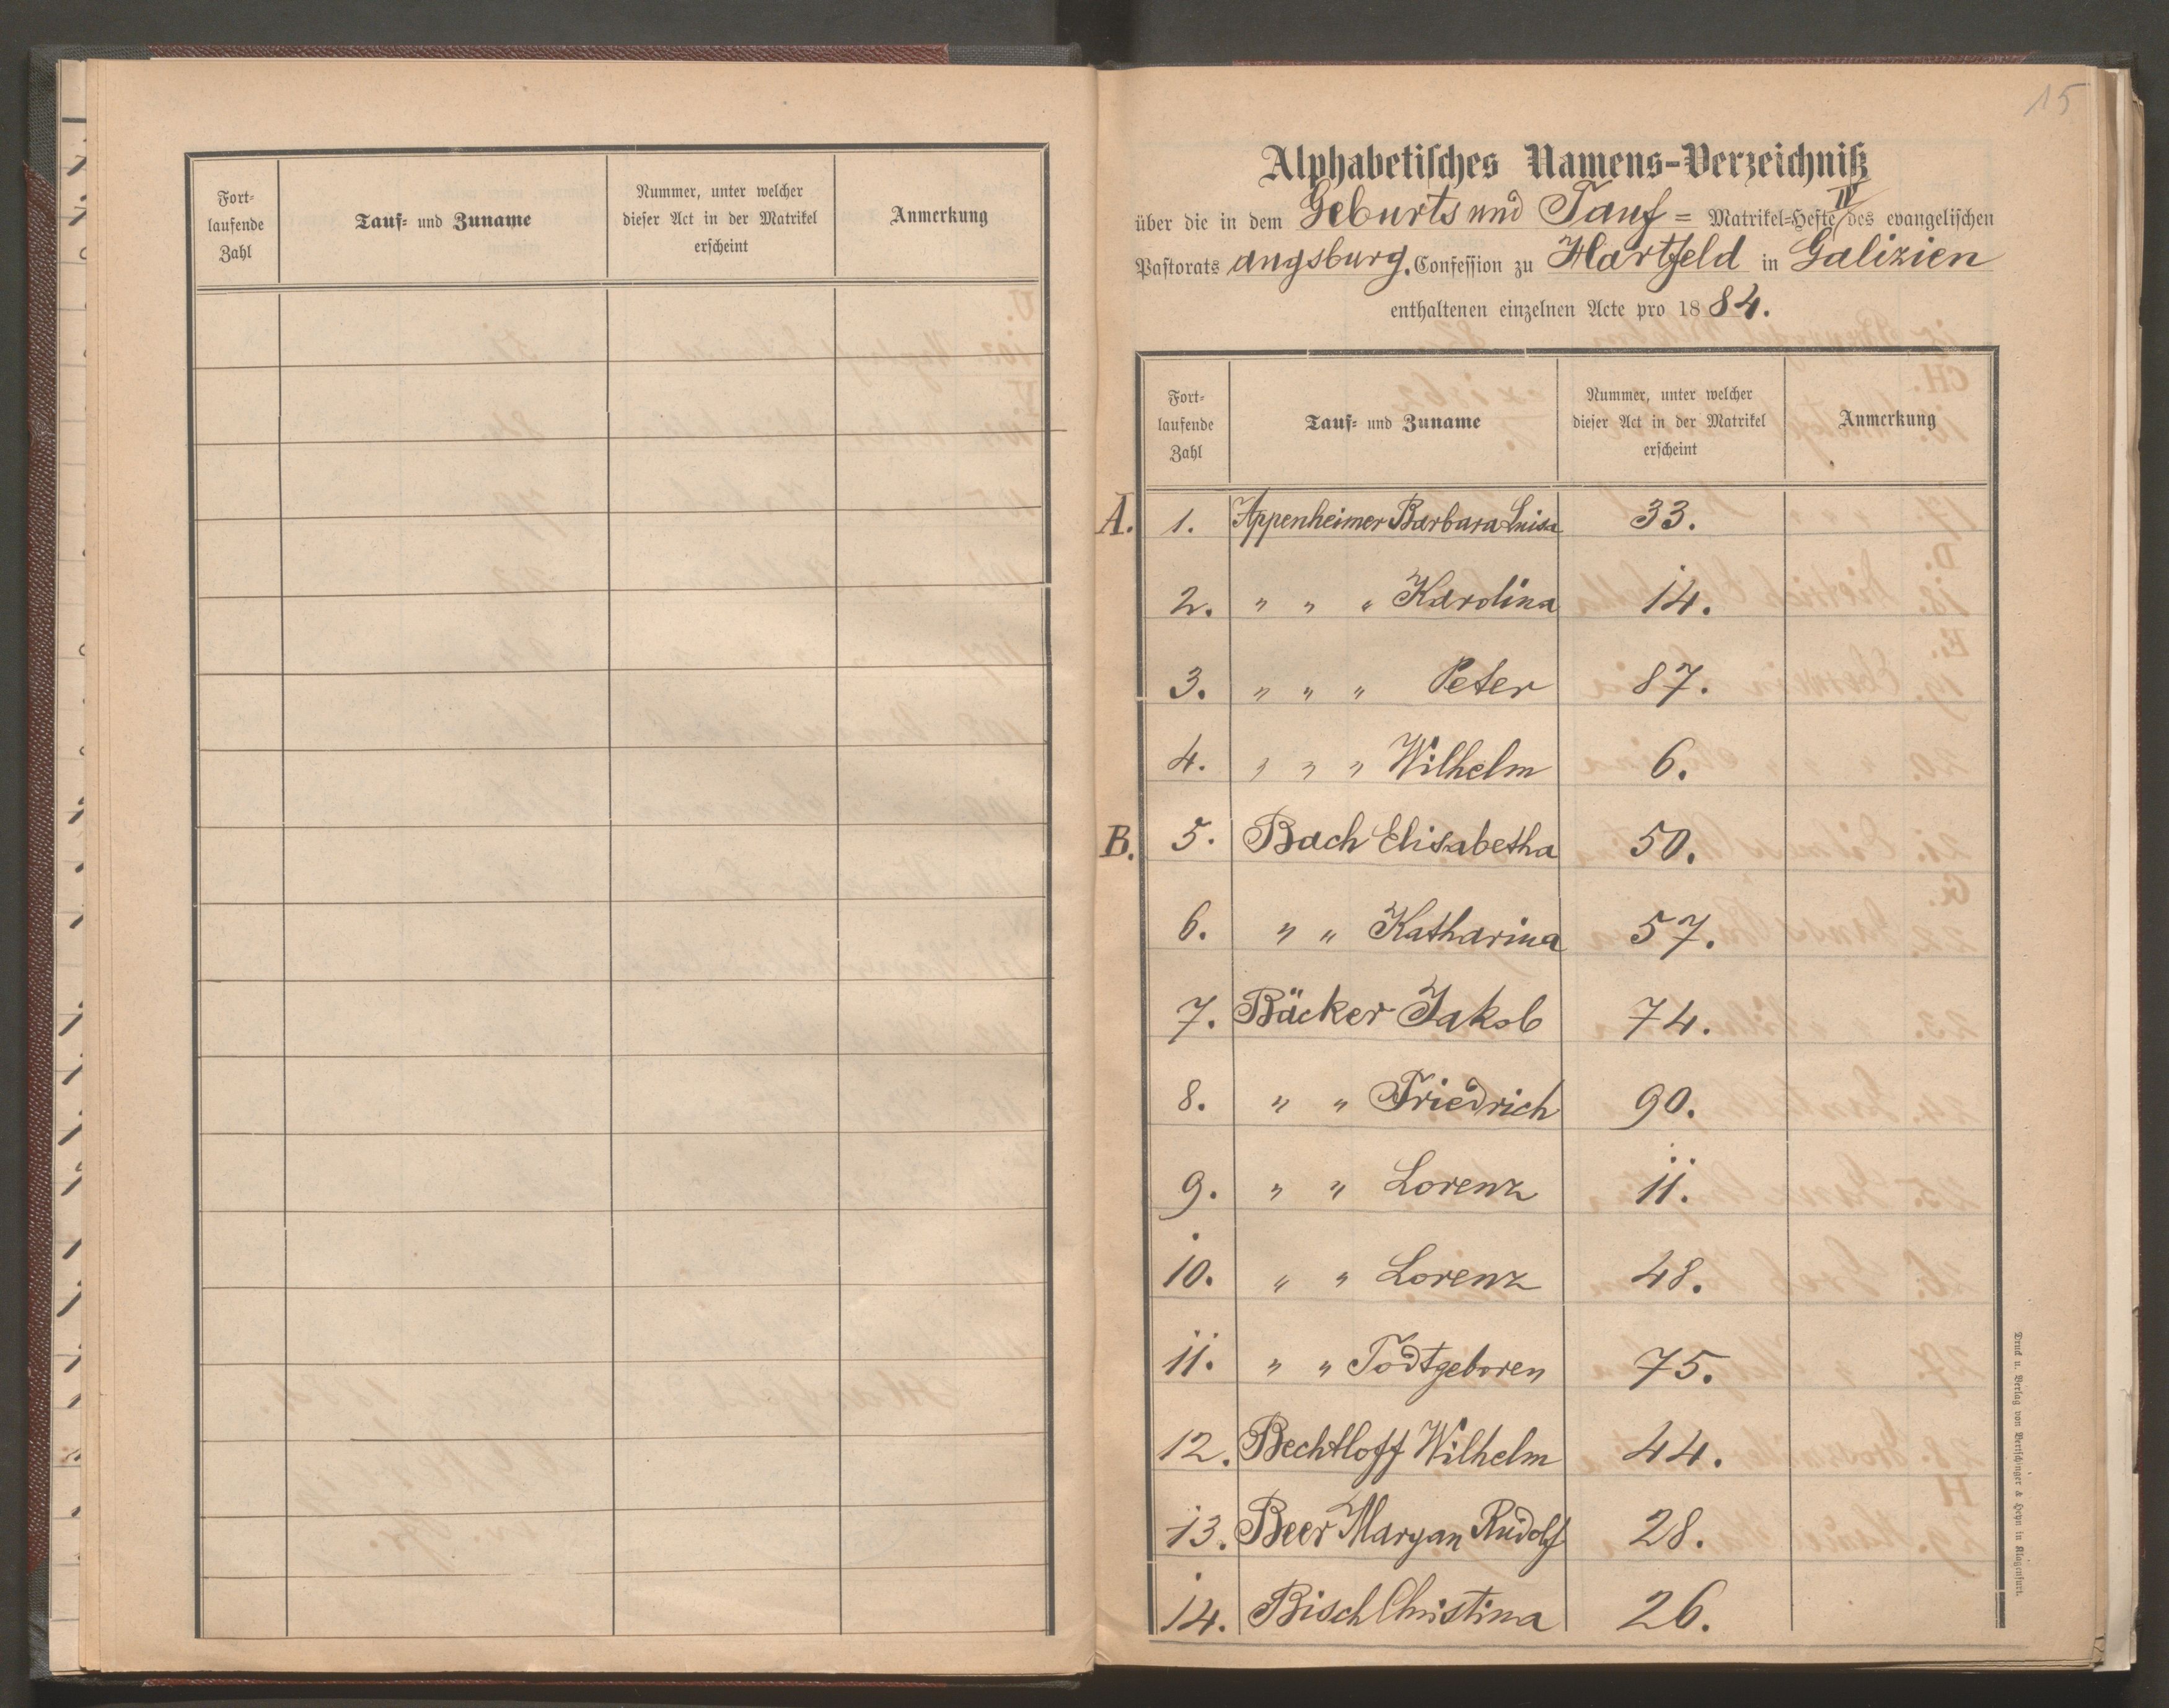 Fort-
laufende
Zahl
Tauf- und Zuname
Nummer, unter welcher
dieser Act in der Matrikel
erscheint
Anmerkung
15
Alphabetisches Namens-Verzeichniß
IV
über die in dem Geburts und Tauf = Matrikel-Hefte des evangelischen
Pastorats augsburg. Confession zu Hartfeld in Galizien
enthaltenen einzelnen Acte pro 1884.
Fort-
laufende
Zahl
Tauf- und Zuname
Nummer, unter welcher
dieser Act in der Matrikel
erscheint
Anmerkung
A. 1. Appenheimer Barbara Luisa 33.
2. " " " Karolina 14.
3. " " " Peter 87.
4. " " " Wilhelm 6.
B. 5. Bach Elisabetha 50.
6. " " Katharina 57.
7. Bäcker Jakob 74.
8. " " Friedrich 90.
9. " " Lorenz 11.
10. " " Lorenz 48.
11. " " Todtgeboren 75.
12. Bechtloff Wilhelm 44.
13. Beer Maryan Rudolf 28.
14. Bisch Christina 26.
Druck u. Verlag von Bertschinger & Heyn in Klagenfurt.